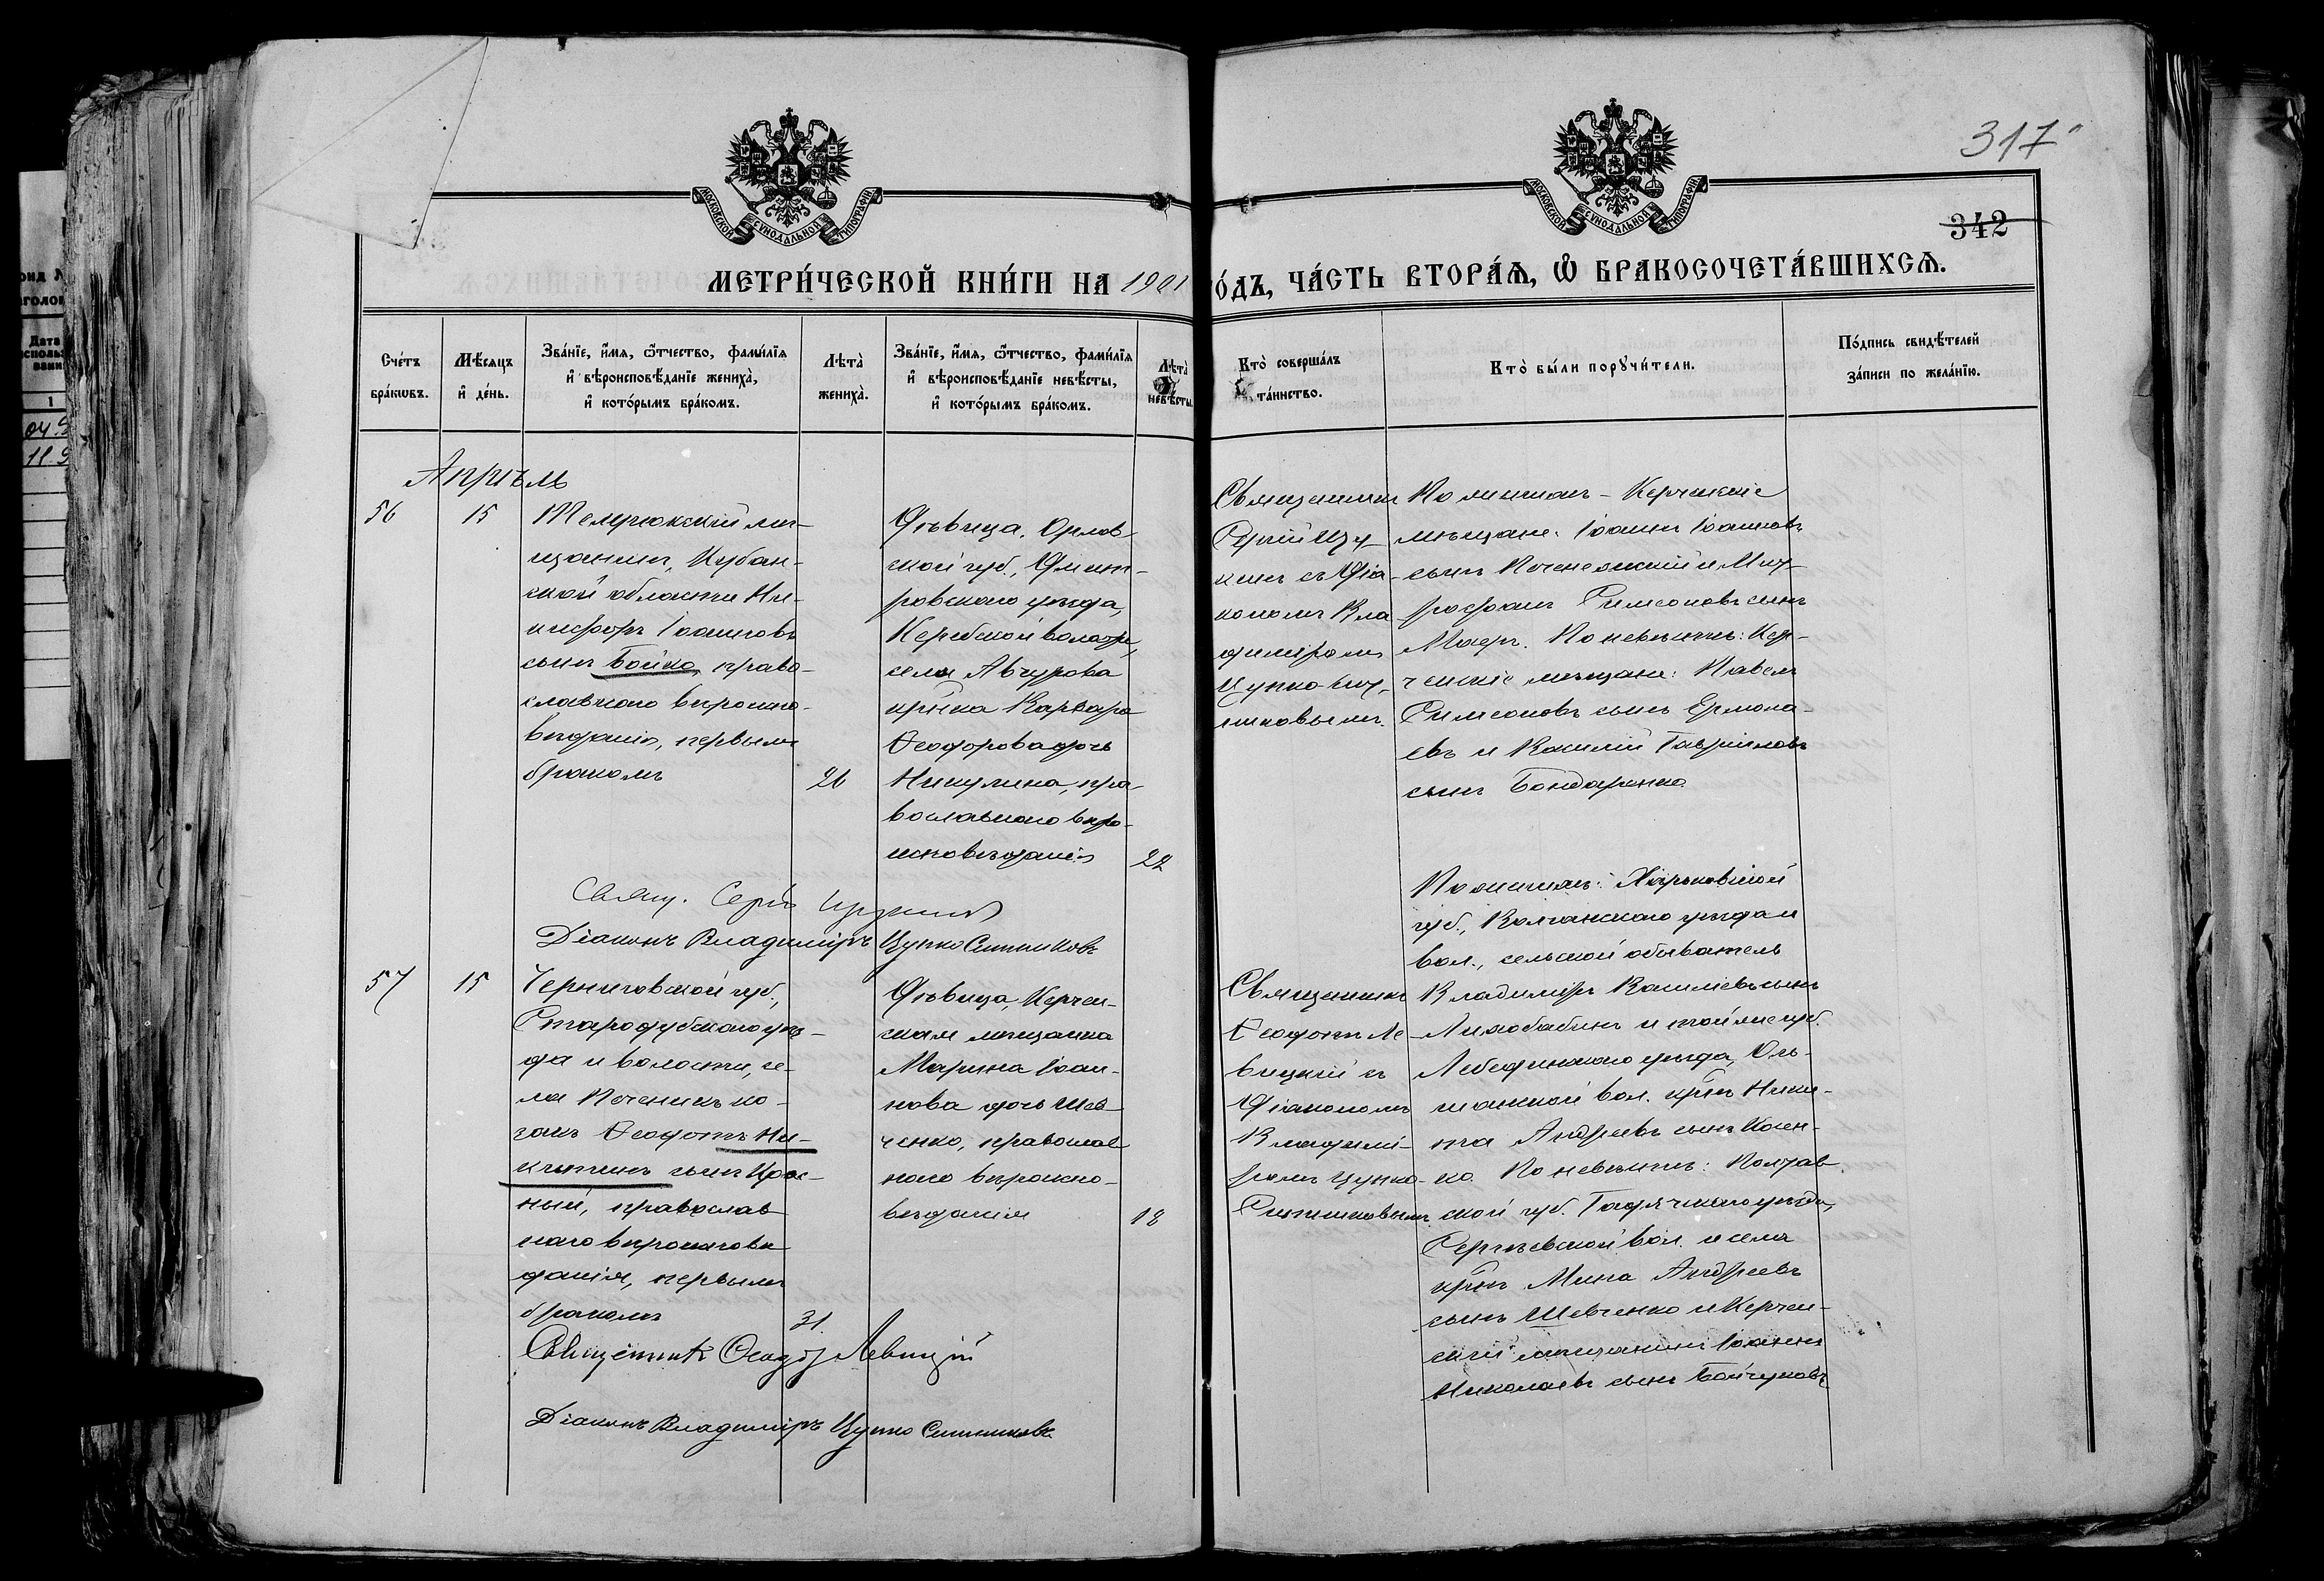 317
342
МОСКОВСКОЙ СУНОДАЛЬНОЙ ТИПОГРАФІИ
МОСКОВСКОЙ СУНОДАЛЬНОЙ ТИПОГРАФІИ
МЕТРИ́ЧЕСКОЙ КНИ́ГИ НА 1901
О́ДЪ, ЧА́СТЬ ВТОРА́Ѧ, Ѽ БРАКОСОЧЕТА́ВШИХСѦ.
Сче́тъ
бра́кѡвъ.
Мѣ́сѧцъ
и҆ де́нь.
Зва́нїе, и҆́мѧ, ѻ҆́тчество, фами́лїѧ
и҆ вѣроисповѣ́данїе жениха̀,
и҆ кото́рымъ бра́комъ.
Лѣта̀
жениха̀.
Зва́нїе, и҆́мѧ, ѻ҆́тчество, фами́лїѧ
и҆ вѣроисповѣ́данїе невѣ́сты,
и҆ кото́рымъ бра́комъ.
Лѣта̀
невѣ́сты
Кто̀ соверша́лъ
та́инство.
Кто̀ бы́ли порꙋчи́тели.
По́дпись свидѣ́телей
за́писи по жела́нїю.
Апрѣль
56
15
Темрюкскій мѣ-
щанинъ, Кубан-
ской области Ни-
кифоръ Іоанновъ
сынъ Бойко, право-
славнаго вѣроиспо-
вѣданія, первымъ
бракомъ
26
Дѣвица, Орлов-
ской губ., Дмит-
ровскаго уѣзда,
села Авчурова
кр-нка Варвара
Ѳеодорова дочь
Никулина, пра-
вославнаго вѣро-
исповѣданія
22
Священникъ
кинъ съ Діа-
кономъ Вла
димиромъ
Цупко-Сит-
никовымъ.
По женихѣ – Керченскіе
мѣщане: Іоаннъ Іоанновъ
рофанъ Симеоновъ сынъ
По невѣстѣ: Кер-
ченскіе мѣщане: Павелъ
Симеоновъ сынъ Ермола-
евъ и Василій Гавріиловъ
сынъ Бондаренко.
Свящ.
Діаконъ Владиміръ Цупко Ситниковъ
57
15
Черниговской губ.,
Стародубскаго уѣз-
да и волости, се-
ла Печеникъ ко-
закъ Ѳеодотъ Ни-
китинъ сынъ Крас-
ный, православ
наго вѣроисповѣ
данія, первымъ
бракомъ
31.
Дѣвица, Керчен-
ская мѣщанка
Марина Іоан-
нова дочь Шев-
ченко, православ
наго вѣроиспо-
вѣданія
18
Священникъ
Ѳеодотъ Ле-
вицкій съ
Діакономъ
Владимі-
ромъ Цупко-
Ситниковымъ
По женихѣ: Харьковской
губ., Волчанскаго уѣзда и
вол., сельской обыватель
Владиміръ Василіевъ сынъ
Лихобабинъ и той же губ.
Лебединскаго уѣзда, Оль-
шанской вол. кр-нъ Ники-
та Андреевъ сынъ Коен-
ко. По невѣстѣ: Полтав
ской губ. Гадячскаго уѣзда,
Сергѣевской вол. и села
кр-нъ Мина Андреевъ
сынъ Шевченко и Керчен-
скій мѣщанинъ Іоаннъ
Николаевъ сынъ Бойчуковъ
Священникъ Ѳеодотъ Левицкій
Діаконъ Владиміръ Цупко Ситниковъ